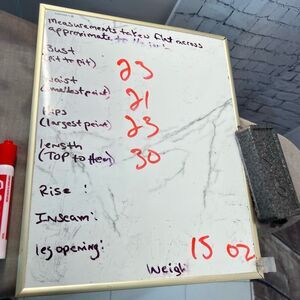 measurements taken flat across
approximate to
Bust 23
(Pit to pit)
Waist 21
(smallest point)
Hips 23
(largest point)
Length 30
(TOP to Hem)
Rise :
Inseam:
leg opening:
15 oz
Weigh